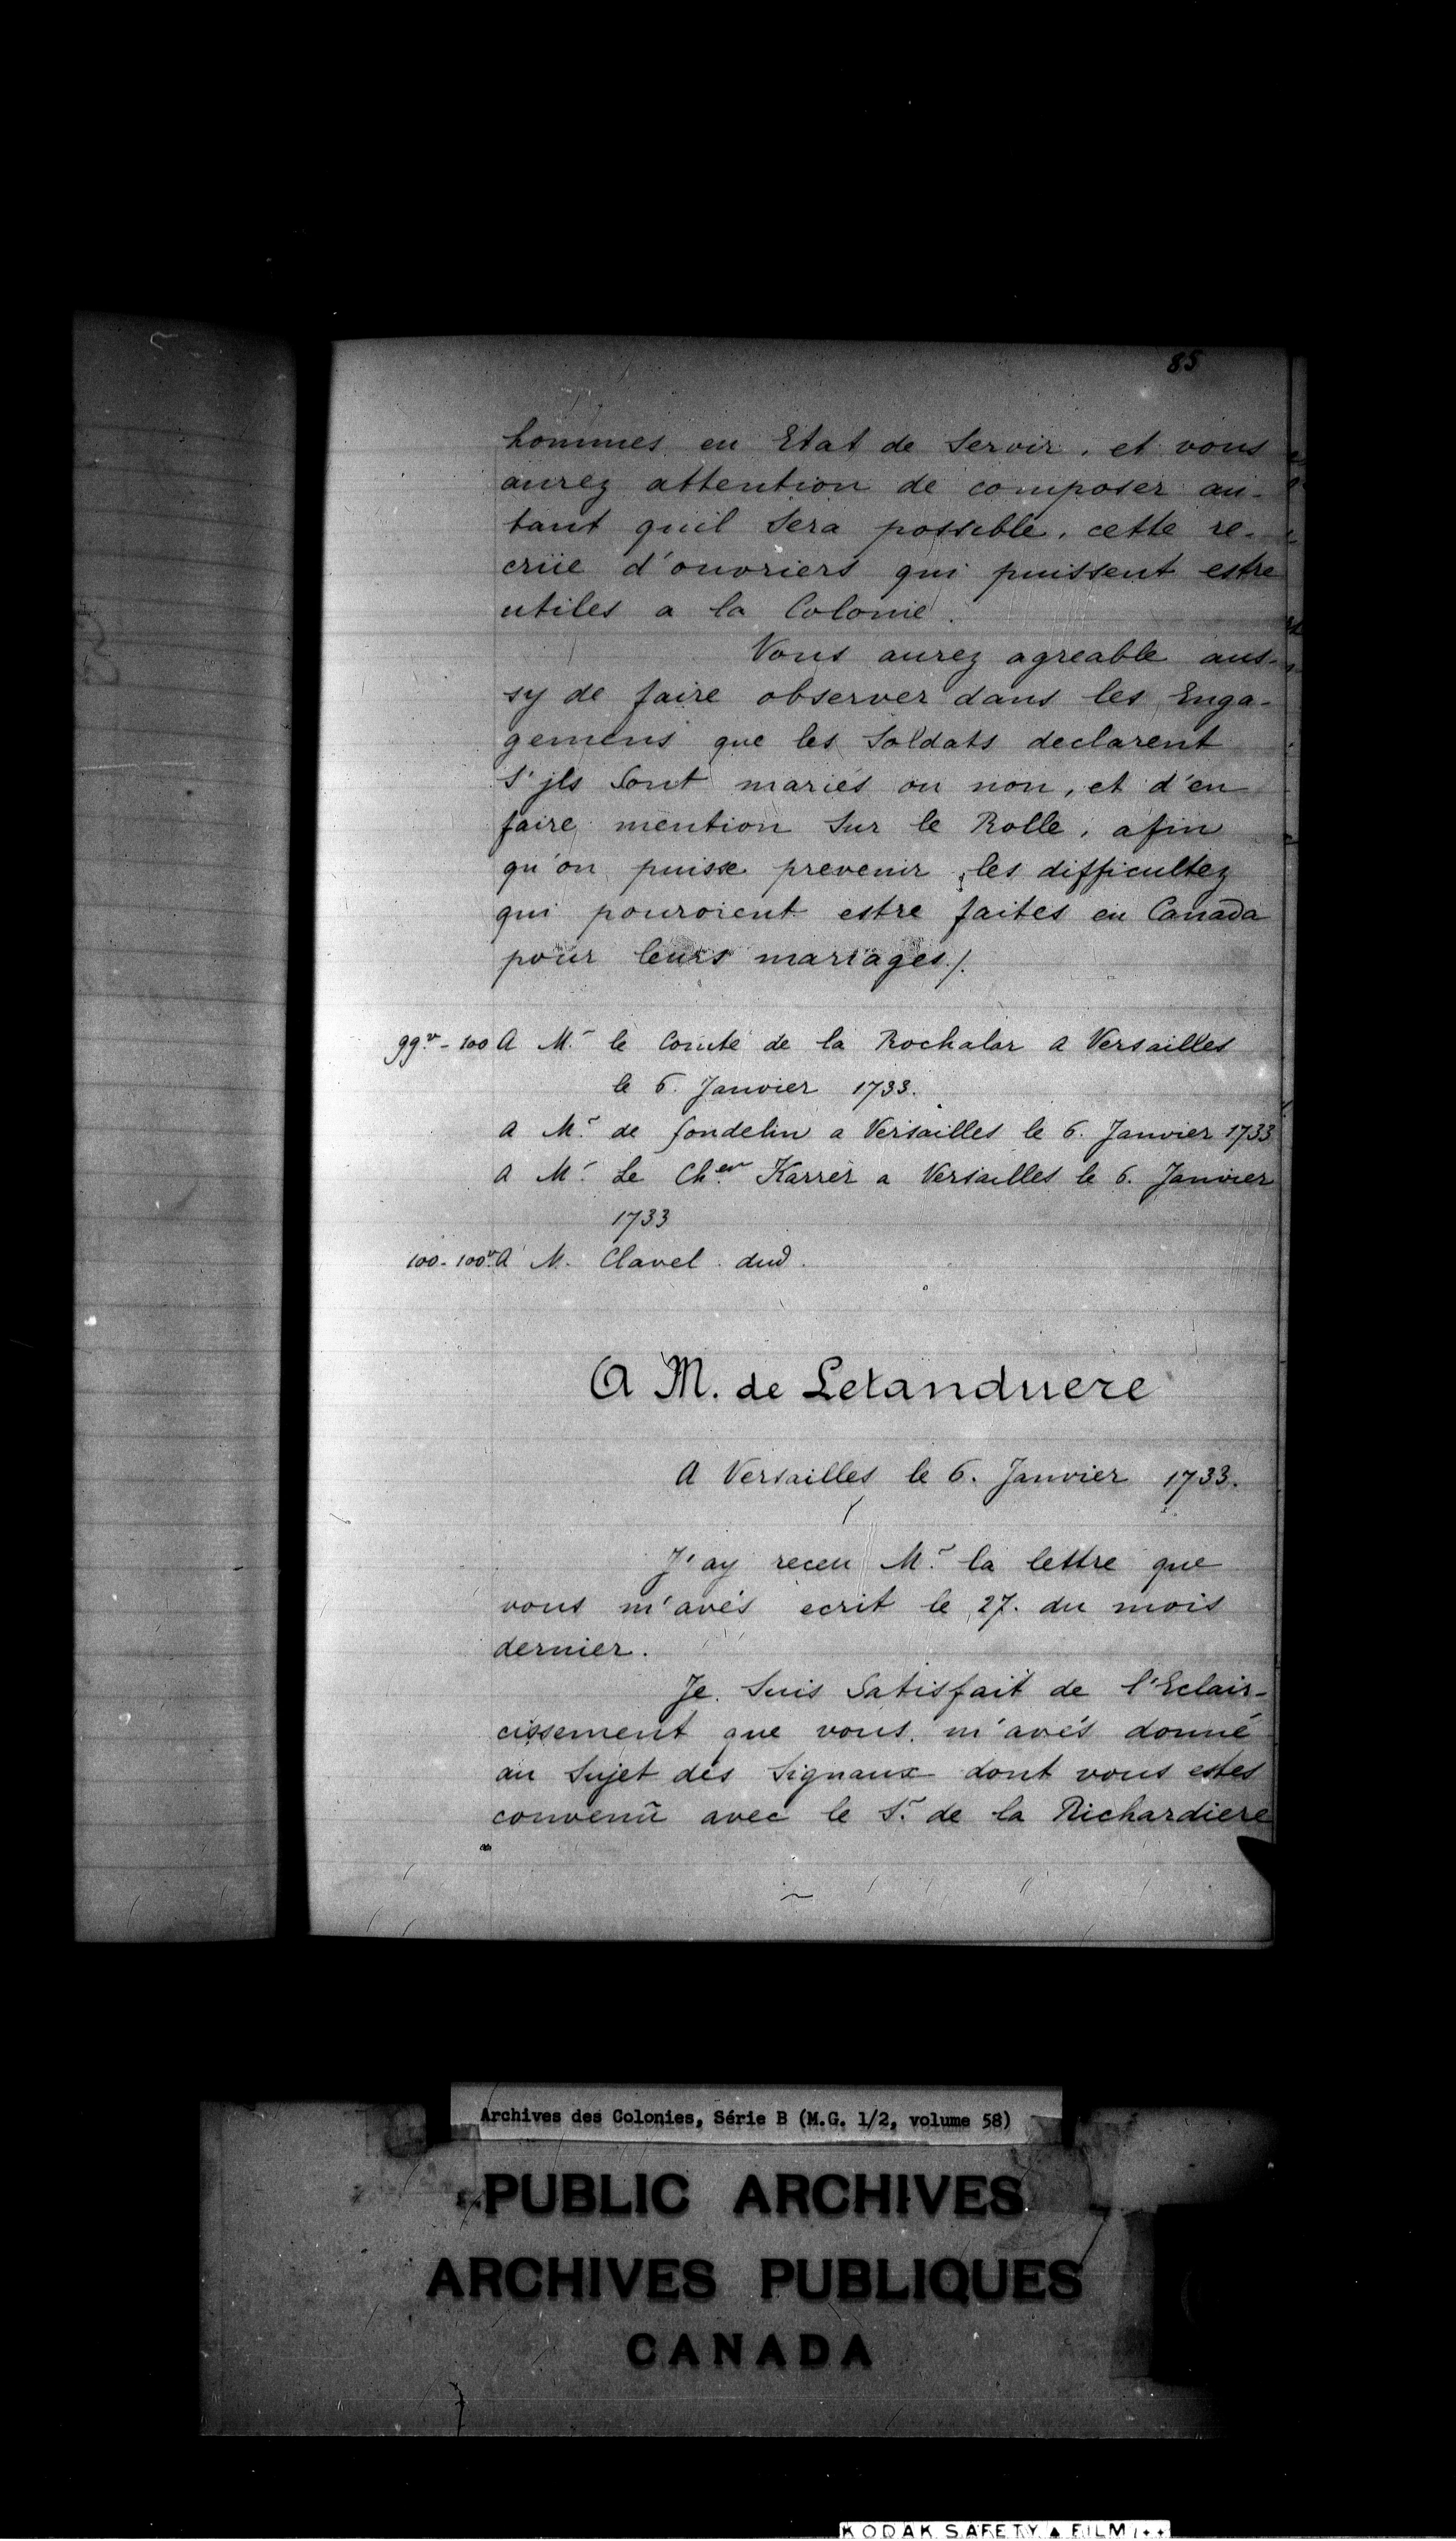 85
hommes en Etat de Servir, et vous
aurez attention de composer au-
tant quil Sera possible, cette re-
crüe d'ouvriers qui puissent estre
utiles a la Colonie.
Vous aurez agreable aus-
sy de faire observer dans les Enga-
gemens que les Soldats declarent
S'jls Sont mariés ou non, et d'en
faire mention Sur le Rolle, afin
qu'on puisse prevenir les difficultez
qui pouroient estre faites en Canada
pour leurs mariages ./.
99v - 100 A Mr le Comte de la Rochalar a Versailles
le 6. Janvier 1733.
a Mr de Gondelin a Versailles le 6. Janvier 1733
a Mr Le Cher Karrer a Versailles le 6. Janvier
1733
100 - 100v A M. Clavel dud.
A M. de Letanduere
A Versailles le 6. Janvier 1733.
J'ay receu Mr la lettre que
vous m'avés ecrit le 27. du mois
dernier.
Je Suis Satisfait de l'Eclair-
cissement que vous m'avés donné
au Sujet des Signaux dont vous estes
convenu avec le Sr de la Richardiere
Archives des Colonies, Série B (M.G. 1/2, volume 58)
PUBLIC ARCHIVES
ARCHIVES PUBLIQUES
CANADA
KODAK SAFETY ▲ FILM